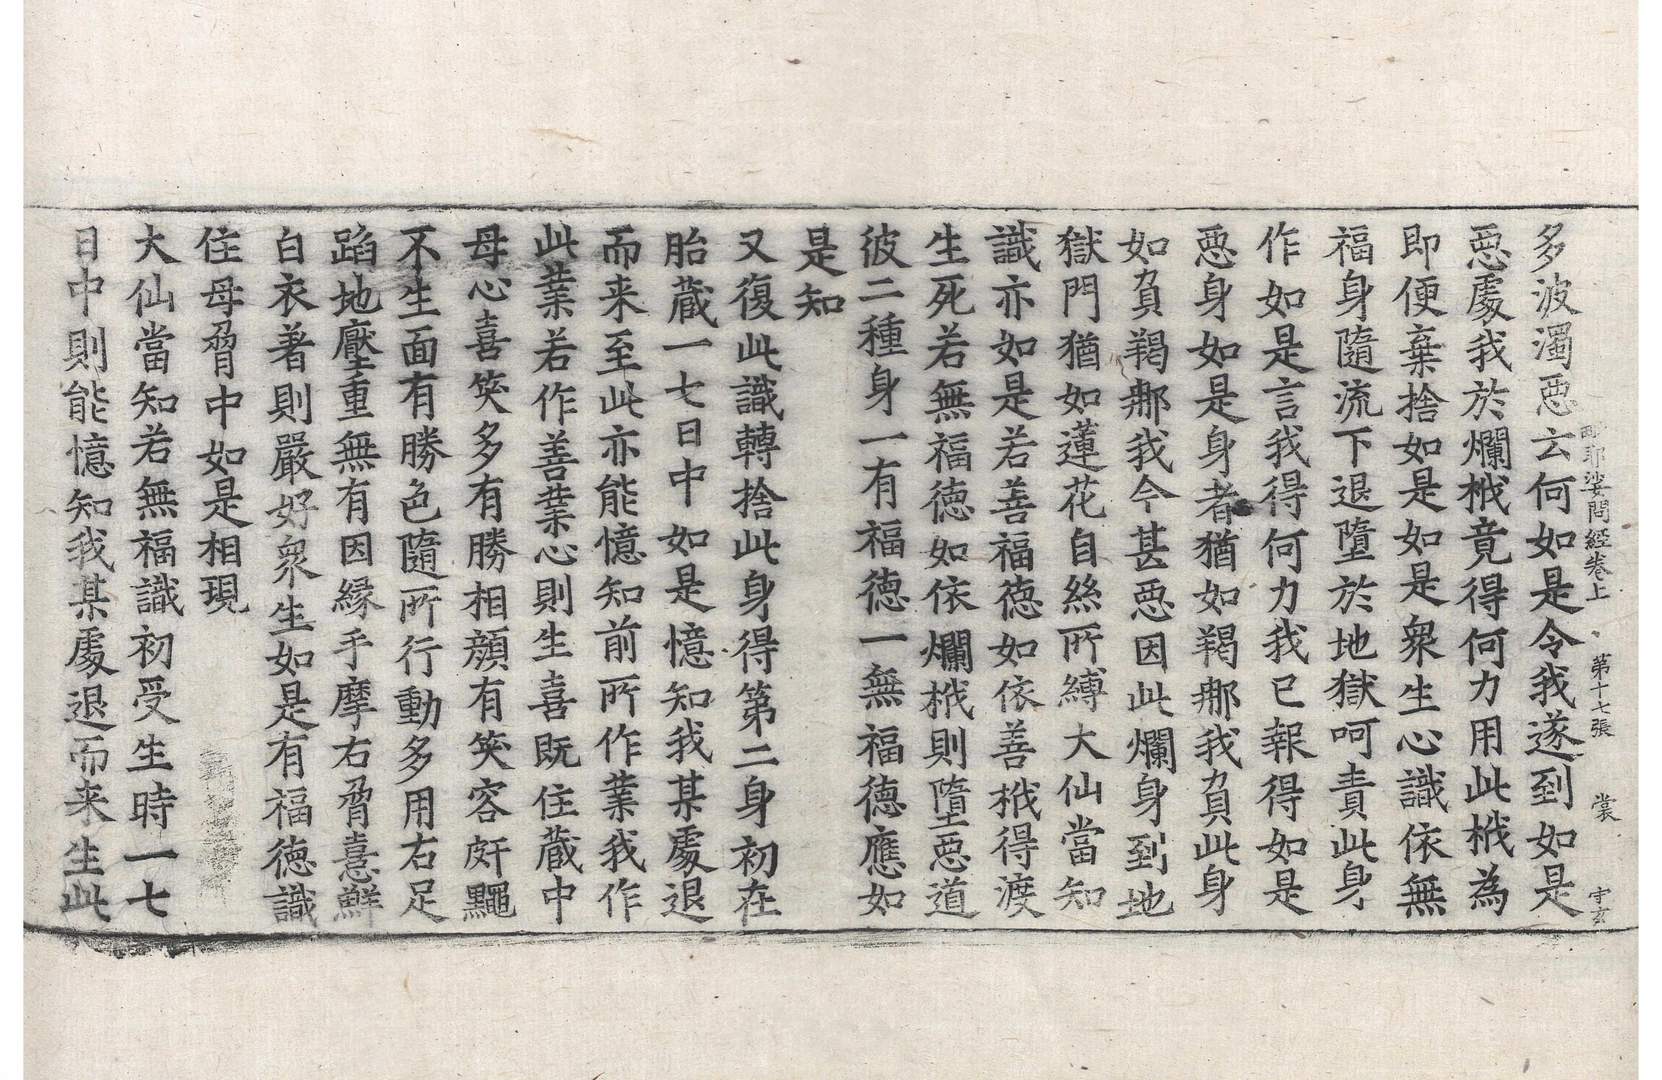 多波濁惡云何如是令我遂到如是
毗耶娑問經卷上 第十七張 裳 守玄
惡處我於爛栰竟得何力用此栰為
即便棄捨如是如是衆生心識依無
福身隨流下退墮於地獄呵責此身
作如是言我得何力我已報得如是
惡身如是身者猶如羯那我負此身
如負羯那我今甚惡因此爛身到地
獄門猶如蓮花自絲所縛大仙當知
識亦如是若善福徳如依善栰得渡
生死若無福徳如依爛栰則墮惡道
彼二種身一有福徳一無福徳應如
是知
又復此識轉捨此身得第二身初在
胎藏一七日中如是憶知我某處退
而来至此亦能憶知前所作業我作
此業若作善業心則生喜既住藏中
母心喜笑多有勝相顔有笑容皯䵴
不生面有勝色隨所行動多用右足
蹈地壓重無有因緣手摩右脅憙鮮
白衣著則嚴好衆生如是有福徳識
住母脅中如是相現
大仙當知若無福識初受生時一七
日中則能憶知我某處退而来生此